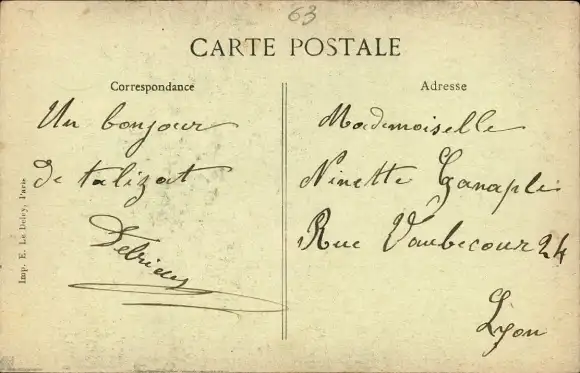 63
CARTE POSTALE
Correspondance
Un bonjour
de talizat
Debrieu
Adresse
Mademoiselle
Ninette
Rue Vaubecour 24
Lyon
Imp. E. Le Deley, Paris